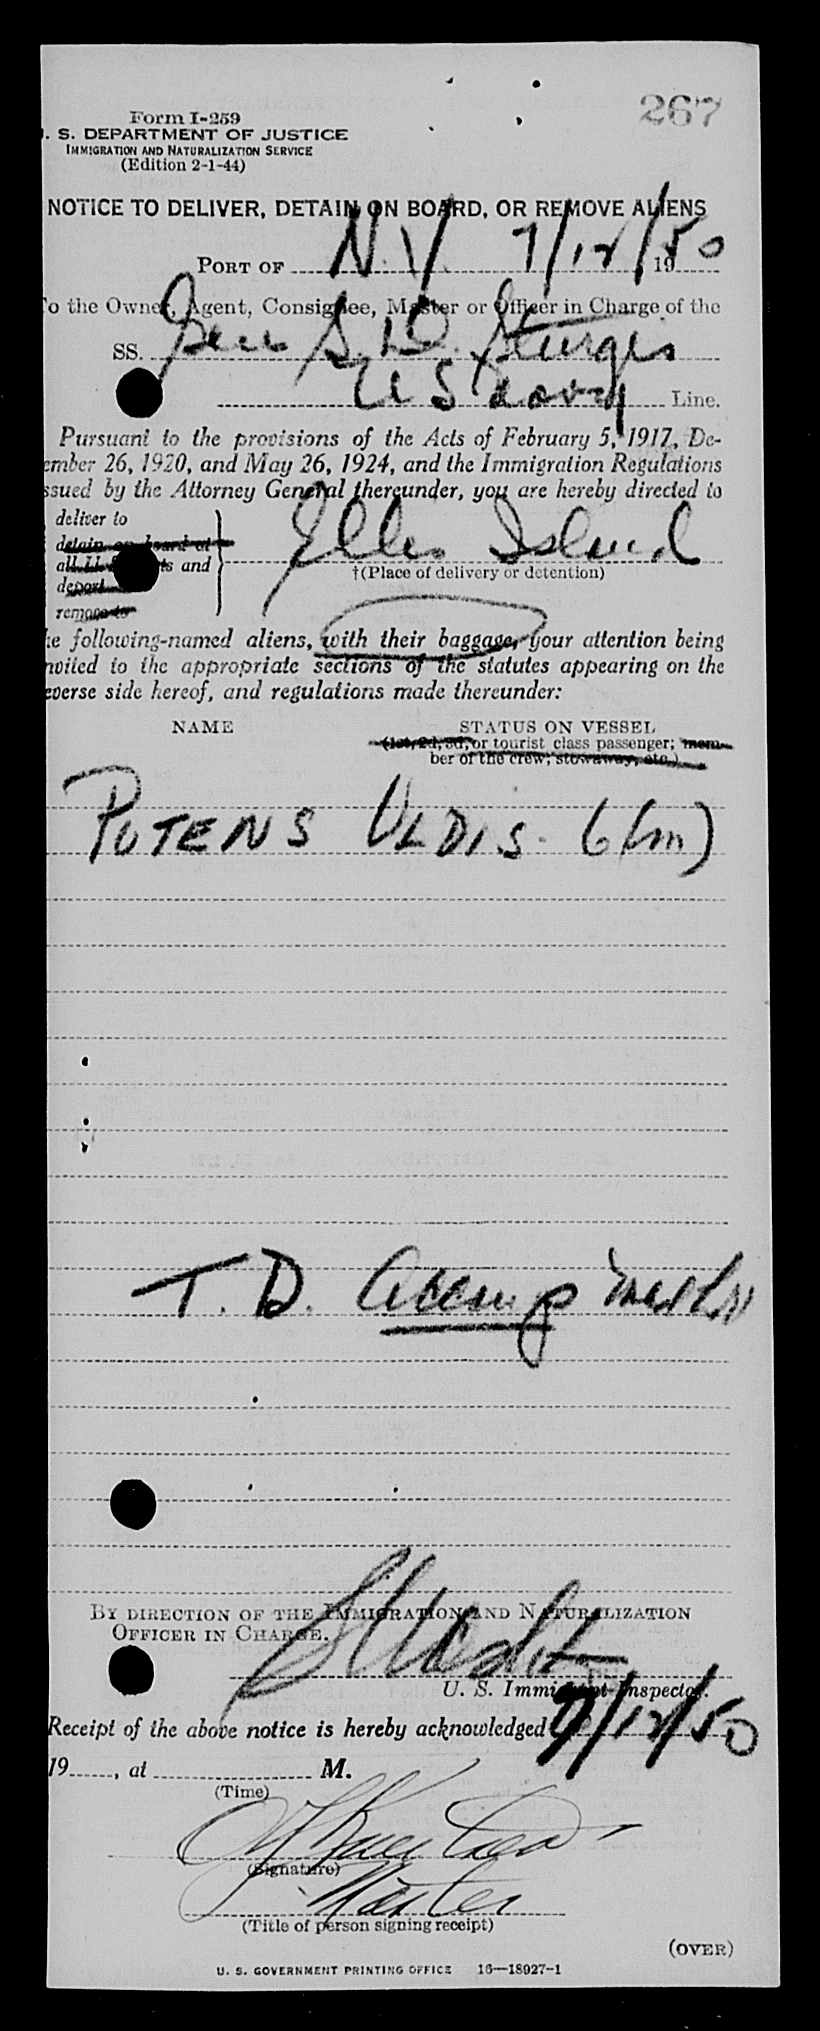 267
Form I-259
. S. DEPARTMENT OF JUSTICE
IMMIGRATION AND NATURALIZATION SERVICE
(Edition 2-1-44)
NOTICE TO DELIVER, DETAIN ON BOARD, OR REMOVE ALIENS
PORT OF N.Y. 7/12/1950
o the Owner, Agent, Consignee, Master or Officer in Charge of the
SS. Gen S. D. Sturgis
U S Navy Line.
Pursuant to the provisions of the Acts of February 5, 1917, De-
ember 26, 1920, and May 26, 1924, and the Immigration Regulations
ssued by the Attorney General thereunder, you are hereby directed to
deliver to
detain on board at
all ts and
deport
remove to
} Ellis Island
†(Place of delivery or detention)
e following-named aliens, with their baggage, your attention being
nvited to the appropriate sections of the statutes appearing on the
everse side hereof, and regulations made thereunder:
NAME STATUS ON VESSEL
(1st, 2d, 3d, or tourist class passenger; mem-
ber of the crew; stowaway, etc.)
PUTENS ULDIS. 6 (m)
T. D. Accomp
BY DIRECTION OF THE IMMIGRATION AND NATURALIZATION
OFFICER IN CHARGE.
U. S. Immigrant Inspector.
Receipt of the above notice is hereby acknowledged 7/12/50
19......, at M.
(Time)
(Signature)
Master
(Title of person signing receipt)
(OVER)
U. S. GOVERNMENT PRINTING OFFICE 16—18927-1